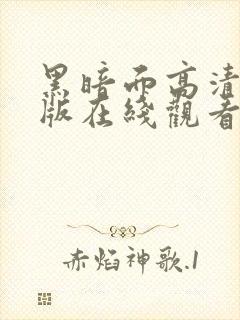 黑暗而高清
版在綫觀看
赤焰神歌.1